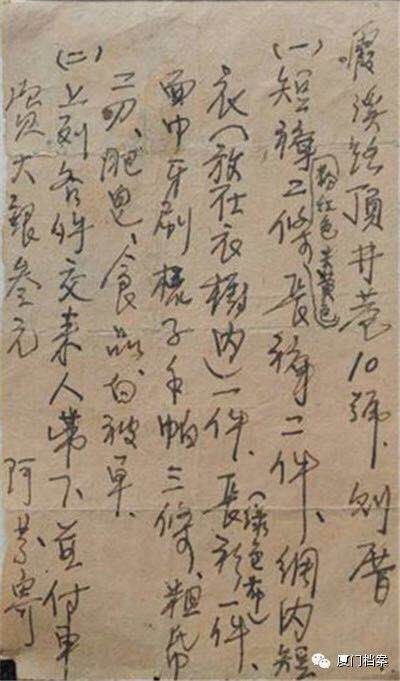 霞溪路頂井巷10號、刘厝
(一)短褲二條、長褲二件、綢内短
粉红色 米黄色
衣(放在衣橱内)一件、長衫一件、
(綠色布)
面巾牙刷梳子手帕三條、粗紙
二刀、肥皂、食品、白被单、
(二)上列各件交来人帶下並付車
資大銀叁元 阿寄
厦门档案